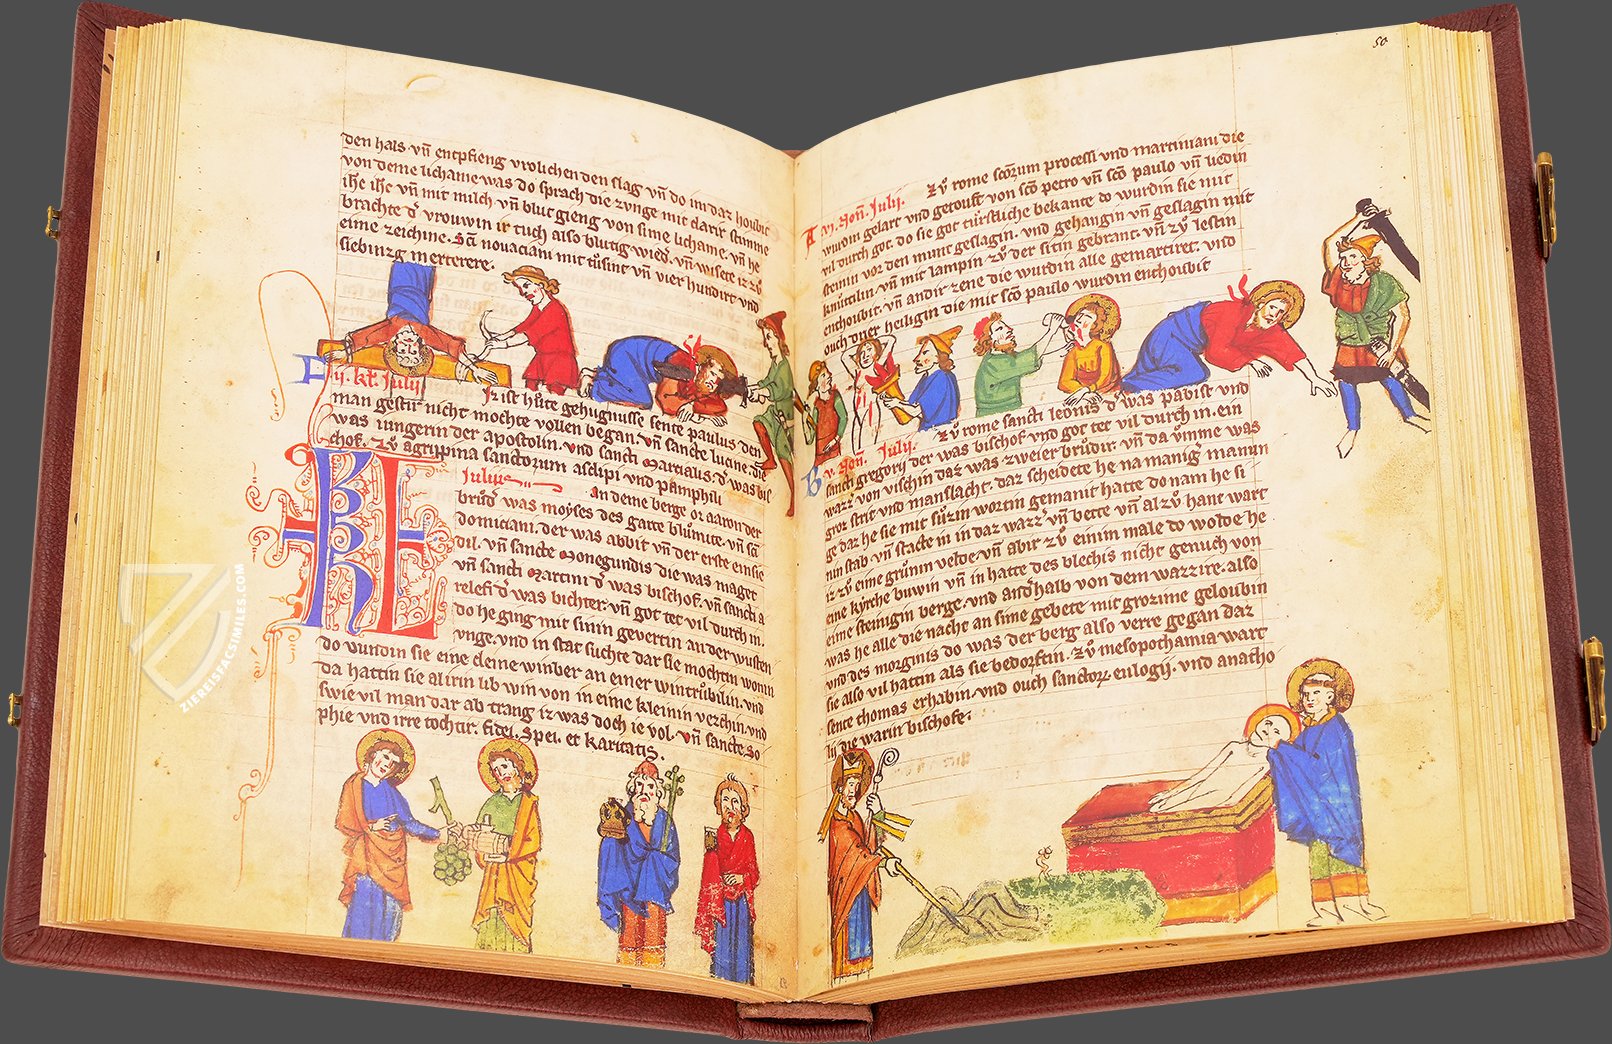 den hals. vn̄ enpfieng vrolichen den slag vn̄ do im daz houbit
von deme lichame was do sprach die zvnge mit clarir stimme
ih̄e ih̄e vn̄ mit milch vn̄ blut gieng von sime lichame. vn̄ he
brachte d᾽ vrouwin ir tuch also blutig wied᾽. vn̄ wisete ir zv̊
eine zeichine. Sc̄i nouaciani mit tusint vn̄ vier hundirt vnd
siebinzg merterere.
ij. kł. Julij Iz ist hůte gehugnisse sente paulus den
man gestir nicht mochte vollen began. vn̄ sancte lucine. die
was iungerin der apostolin. vnd sancti Marcialis. d᾽ was bis
chof. Zv̊ agrippina sanctorum asclipi vnd pamphili
KL
Julius
An deme berge or aaron der
brůd᾽ was moyses des garte blůmite. vn̄ sc̄i
domiciani. der was abbit vn̄ der erste einsie
dil. vn̄ sancte Monegundis die was maget
vn̄ sancti Martini d᾽ was bischof. vn̄ sancti a
relefi d᾽ was bichter. vn̄ got tet vil durch in.
do he ging mit sinin gevertin an der wusten
vnge. vnd in stat suchte dar sie mochtin wonin
do vundin sie eine cleine winber an einer wintrůbilin. vnd
da hattin sie alirin lib win von in eime kleinin vezchin. vnd
swie vil man dar ab trang iz was doch ie vol. vn̄ sancte. so
phie vnd irre tochtir. fidei. Spei. et Karitatis.
50
vi. Non̄. Julij. Zv̊ rome sc̄orum processi vnd martiniani die
wurdin gelart vnd getouft von sc̄o petro vn̄ sc̄o paulo vn̄ liedin
vil durch got. do sie got türstliche bekante do wurdin sie mit
steinin vor den munt geslagin. vnd gehangin vn̄ geslagin mit
knuttilin. vn̄ mit lampin zv̊ der sitin gebrant. vn̄ zv̊ lestin
enthoubit. vn̄ andir zene die wurdin alle gemartiret. vnd
ouch drier heiligin die mit sc̄o paulo wurdin enthoubit
v. Non̄. Julij. Zv̊ rome sancti leonis d᾽ was pabist vnd
sancti gregorij der was bischof vnd got tet vil durch in. ein
wazz᾽ von vischin daz was zweier brůdir. vn̄ da vmme was
groz strit vnd manslacht. daz scheidete he na manig᾽ manun
ge daz he sie mit sůzin wortin gemanit hatte do nam he si
nin stab vn̄ stacte in in daz wazz᾽ vn̄ bette vn̄ al zv̊ hant wart
iz zv̊ eine grůnin velde. vn̄ abir zv̊ einim male do wolde he
eine kyrche buwin vn̄ in hatte des blechis nicht genuch von
eime steinigin berge. vnd andʼhalb von dem wazzire. also
was he alle die nacht an sime gebete mit grozime geloubin
vnd des morginis do was der berg also verre gegan daz
sie also vil hattin als sie bedorftin. Zv̊ mesopothamia wart
sente thomas erhabin. vnd ouch sanctorz eulogij. vnd anatho
lij die warin bischofe.
ZIEREISFACSIMILES.COM